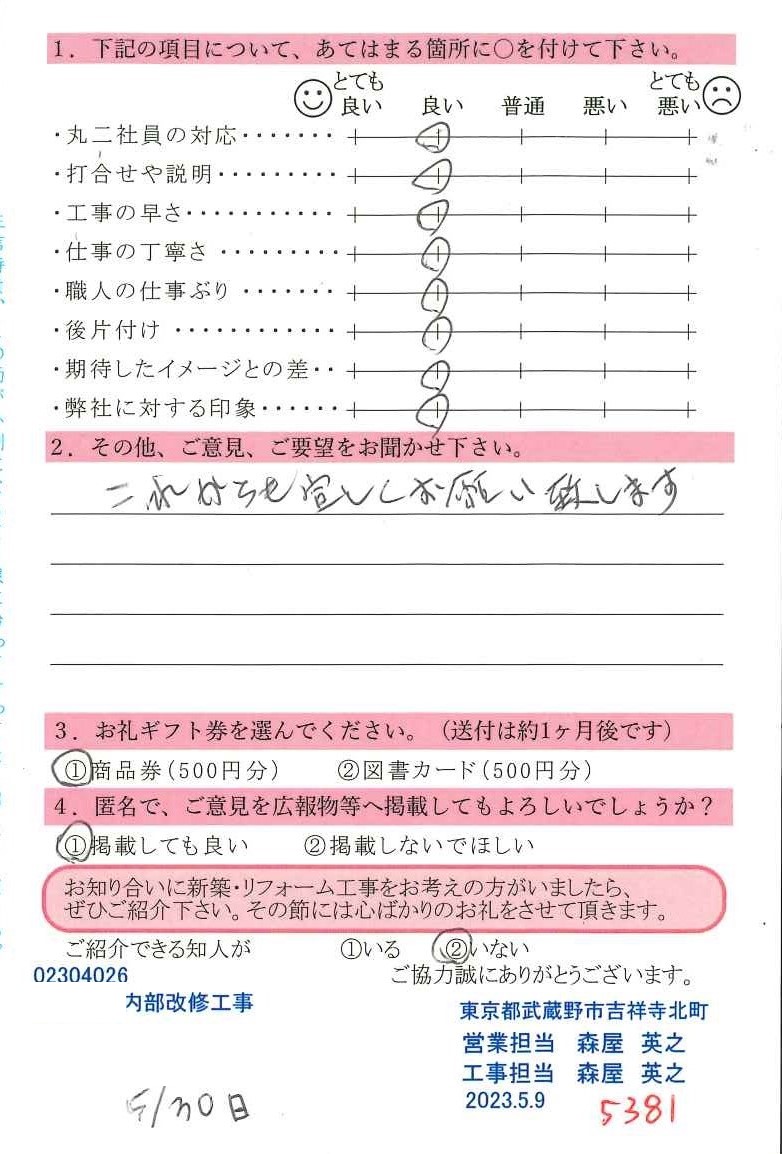 1. 下記の項目について、あてはまる箇所に○を付けて下さい。
とても良い 良い 普通 悪い とても悪い
・丸二社員の対応・・・・・・・
・打合せや説明・・・・・・・・・
・工事の早さ・・・・・・・・・・・
・仕事の丁寧さ ・・・・・・・・・
・職人の仕事ぶり ・・・・・・・
・後片付け ・・・・・・・・・・・・
・期待したイメージとの差・・
・弊社に対する印象・・・・・・
2. その他、ご意見、ご要望をお聞かせ下さい。
これからも宜しくお願い致します
3. お礼ギフト券を選んでください。(送付は約1ヶ月後です)
①商品券(500円分) ②図書カード(500円分)
4. 匿名で、ご意見を広報物等へ掲載してもよろしいでしょうか?
①掲載しても良い ②掲載しないでほしい
お知り合いに新築・リフォーム工事をお考えの方がいましたら、
ぜひご紹介下さい。その節には心ばかりのお礼をさせて頂きます。
ご紹介できる知人が ①いる ②いない
02304026 ご協力誠にありがとうございます。
内部改修工事
東京都武蔵野市吉祥寺北町
営業担当 森屋 英之
工事担当 森屋 英之
2023.5.9
5381
5/30日